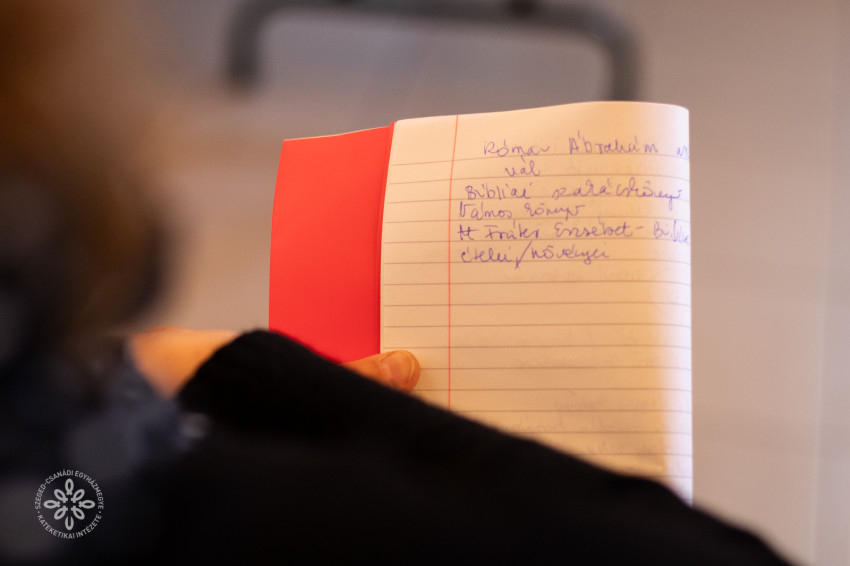 Róma- Ábrahám
val
Bibliai szakácskönyv
Vámos könyv
Fráter Erzsébet - Biblia
ételei/növényei
SZEGED-CSANÁDI EGYHÁZMEGYE
KATEKETIKAI INTÉZETE